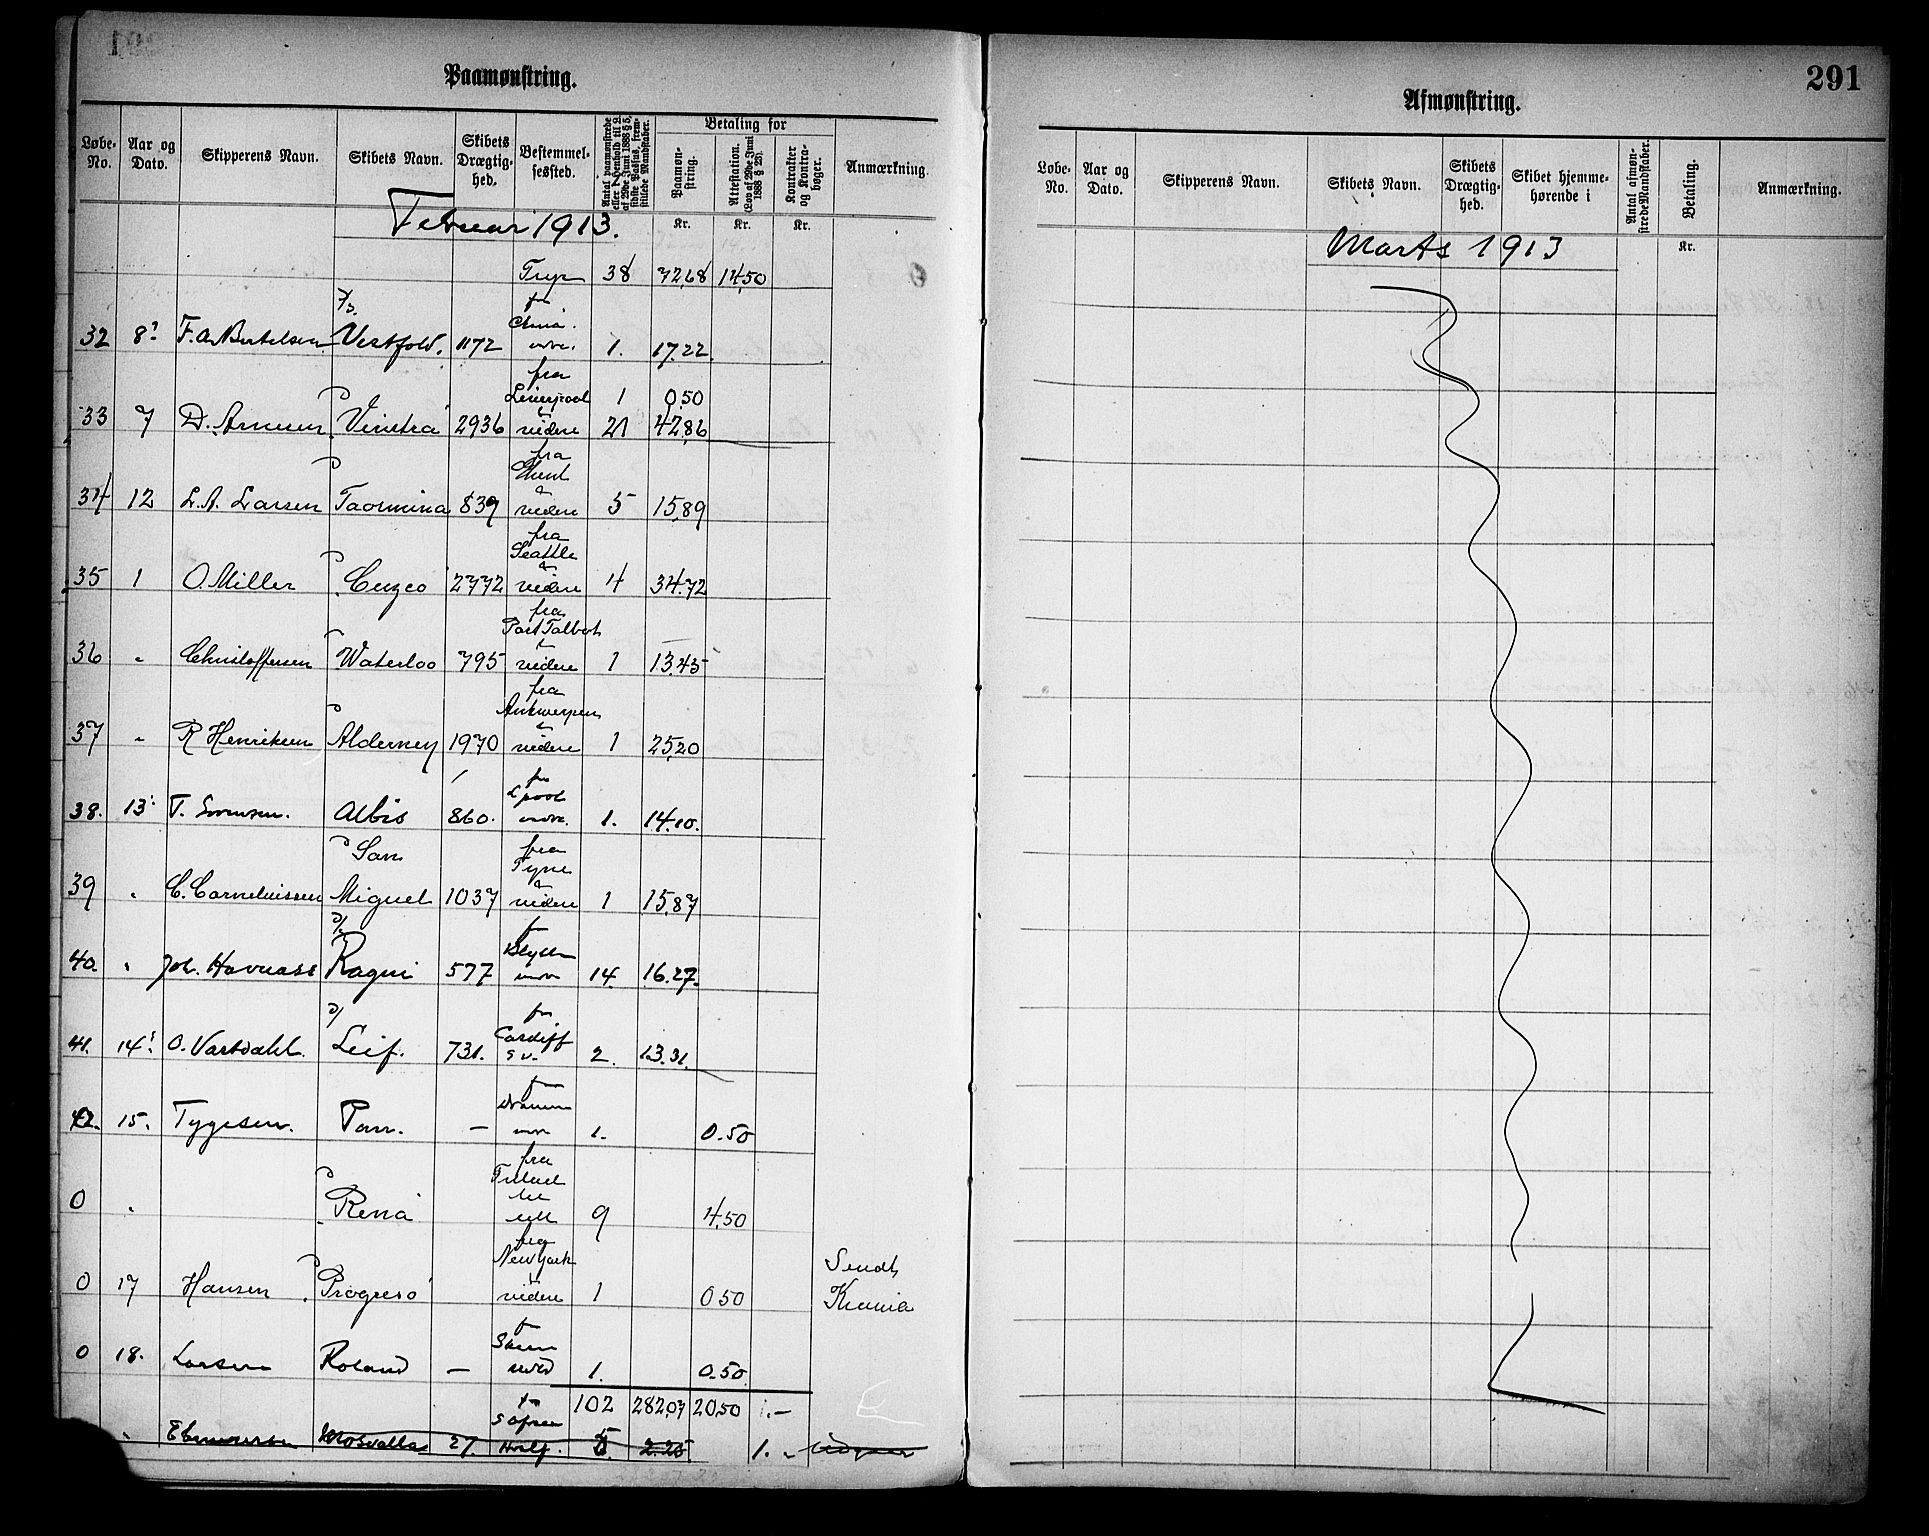 Paamønstring.
Løbe-No. Aar og Dato. Skipperens Navn. Skibets Navn. Skibets Drægtig-hed. Bestemmel-sessted. Antal paamønstrede eller i Henhold til L. af 29de Juni 1888 § 5, sidste Passus, frem-stillede Mandskaber. Betaling for Paamøn-string. Attestation. (Lov af 29de Juni 1888 § 23). Kontrakter og Kontra-bøger. Anmærkning.
Februar 1913. Kr. Kr. Kr.
38 72,68 14,50
32 8' Vestfold. 1172 1. 17.22
fra Liverpool 1 0,50
33 7 D. Arnesen Vinstra 2936 videre 21 42,86
fra
34 12 L.A. Larsen Taormina 839 videre 5 15,89
fra Seattle
35 1 O. Miller Cuzco 2772 videre 4 34.72
fra Port Talbot
36 " Christoffersen Waterloo 795 videre 1 13.45
fra Antwerpen
37 " R Henriksen Alderney 1970 videre 1 25,20
38. 13' T. Sørensen. Albis 860. 1. 14.10.
San fra Tyne
39 " C. Corneliussen Miguel 1037 videre 1 15,87
40. " Joh. Havnaas Ragni 577 14 16.27.
fra Cardiff
41. 14' O. Vartdahl. Leif. 731. 2. 13.31.
42. 15. Tygesen. Pan. — 1. 0.50
fra
0 " Rena 9 4,50
fra New York Sendt
0 17 Hansen Progreso videre 1 0,50 Kr.ania
0 18. Larsen Roland — 1. 0.50
102 282,07 20,50 1.—
" Mosvalla 27. 5. 2.25 1. "
291
Afmønstring.
Løbe-No. Aar og Dato. Skipperens Navn. Skibets Navn. Skibets Drægtig-hed. Skibet hjemme-hørende i Antal afmøn-strede Mandskaber. Betaling. Anmærkning.
Marts 1913 Kr.